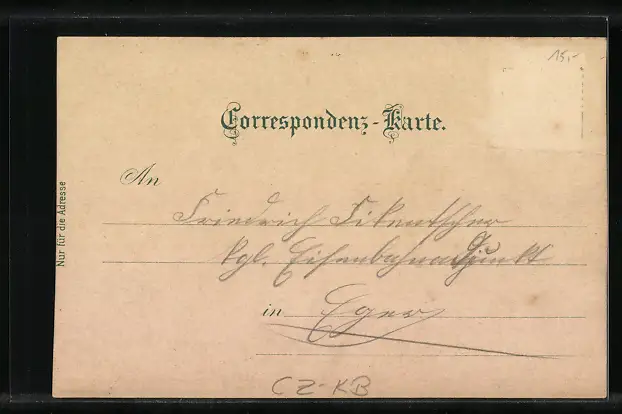 15,-
Correspondenz-Karte.
An
Friedrich Fikentscher
kgl. Eisenbahnadjunkt
in Eger
Nur für die Adresse
CZ-KB